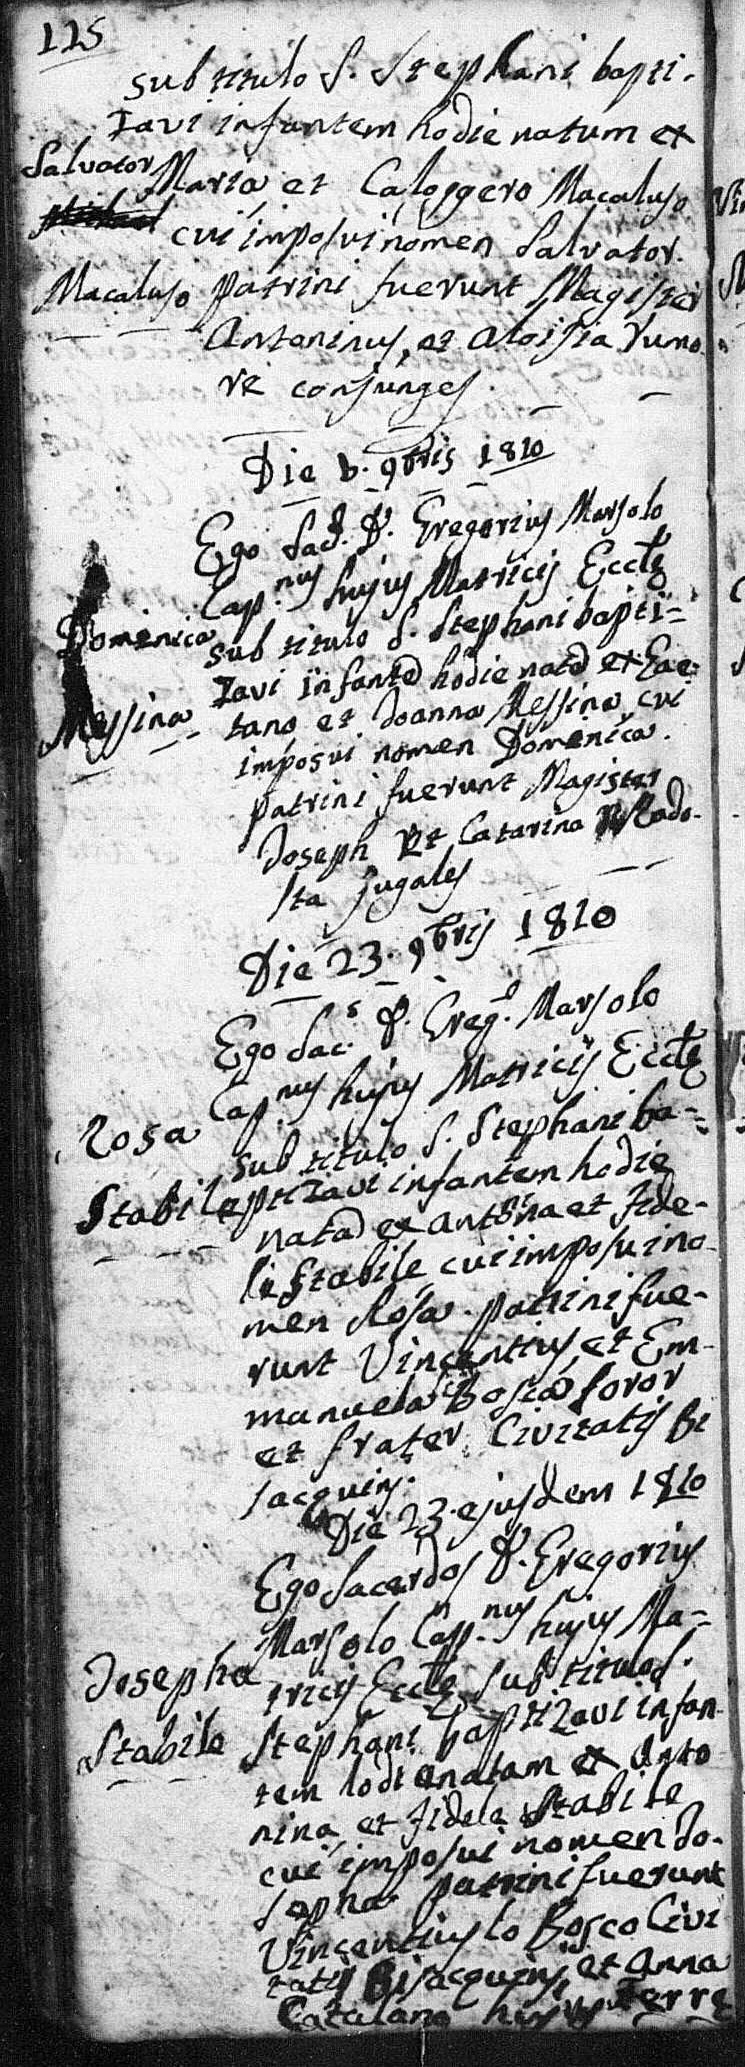 115
sub titulo S. Stephani bapti-
zavi infantem hodie natum ex
Salvator Maria et Caloggero Macaluso
cui imposui nomen Salvator.
Macaluso patrini fuerunt Magister
Antoninus, et Aloisia
conjuges.
Die 6. 9bris 1810
Ego Sac. D. Gregorius Marsolo
Cap.nus hujus Matricis Eccle
Domenica sub titulo S. Stephani bapti=
zavi infante hodie nata ex Gae-
Messina tano et Joanna Messina cui
imposui nomen Domenica.
patrini fuerunt Magister
Joseph et Catarina
sta jugales
Die 23. 9bris 1810
Ego Sac.s D. Greg.o Marsolo
Cap.nus hujus Matricis Eccle
Rosa sub titulo S. Stephani ba-
Stabile ptizavi infantem hodie
nata ex Antonina et Fide-
li Stabile cui imposui no-
men Rosa. patrini fue-
runt Vincentius, et Em-
manuela Bosco soror
et frater Civitatis Bi
sacquini.
Die 23. ejusdem 1810
Ego Sacerdos D. Gregorius
Marsolo Capp.nus hujus Ma-
Josepha tricis Eccle sub titulo S.
Stabile Stephani baptizavi infan-
tem hodie natam ex Anto-
nina, et Fidele Stabile
cui imposui nomen Jo-
sepha patrini fuerunt
Vincentius lo Bosco Civi
tatis Bisacquini, et Anna
Catalano hujus Terre